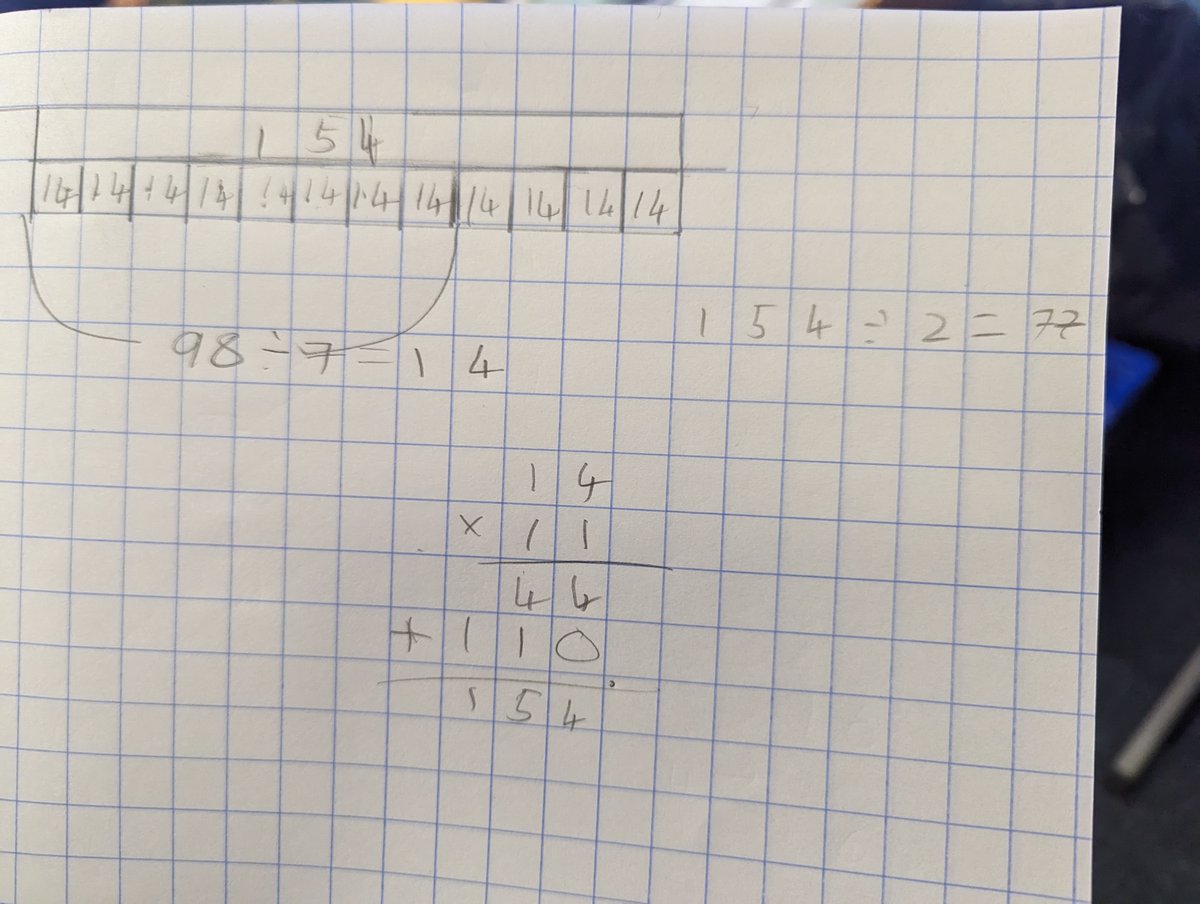 1 5 4
14 14 14 14 14 14 14 14 14 14 14 14
1 5 4 ÷ 2 = 77
98 ÷ 7 = 1 4
1 4
× 1 1
4 4
+ 1 1 0
1 5 4